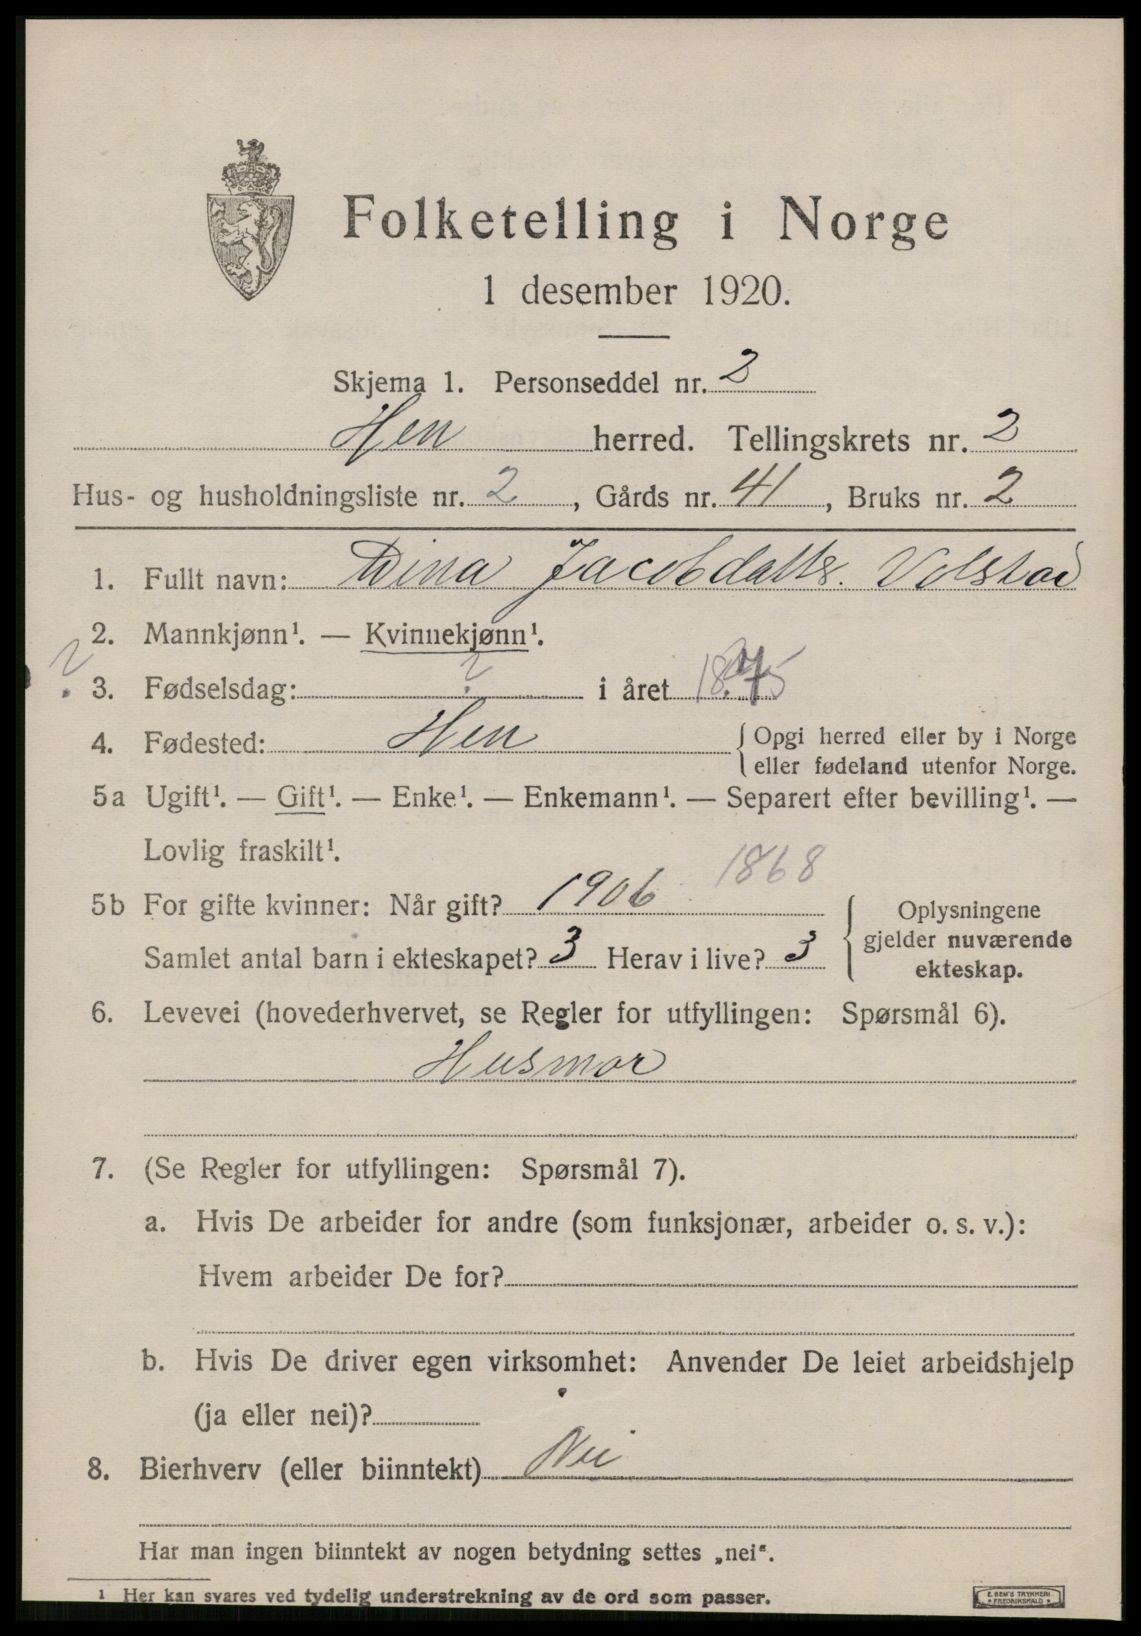 Folketelling i Norge
1 desember 1920.
Skjema 1. Personseddel nr. 2
Hen herred. Tellingskrets nr. 2
Hus- og husholdningsliste nr. 2, Gårds nr. 41, Bruks nr. 2
1. Fullt navn: Dina Jacobdattr. Volstad
2. Mannkjønn¹. — Kvinnekjønn¹.
? 3. Fødselsdag: ? i året 1875
4. Fødested: Hen { Opgi herred eller by i Norge
eller fødeland utenfor Norge.
5a Ugift¹. — Gift¹. — Enke¹. — Enkemann¹. — Separert efter bevilling¹. —
Lovlig fraskilt¹.
1868
5b For gifte kvinner: Når gift? 1906 { Oplysningene
gjelder nuværende
Samlet antal barn i ekteskapet? 3 Herav i live? 3 ekteskap.
6. Levevei (hovederhvervet, se Regler for utfyllingen: Spørsmål 6).
Husmor
7. (Se Regler for utfyllingen: Spørsmål 7).
a. Hvis De arbeider for andre (som funksjonær, arbeider o. s. v.):
Hvem arbeider De for?
b. Hvis De driver egen virksomhet: Anvender De leiet arbeidshjelp
(ja eller nei)?
8. Bierhverv (eller biinntekt) Nei
Har man ingen biinntekt av nogen betydning settes „nei“.
¹ Her kan svares ved tydelig understrekning av de ord som passer.
E. SEM'S TRYKKERI
FREDRIKSHALD